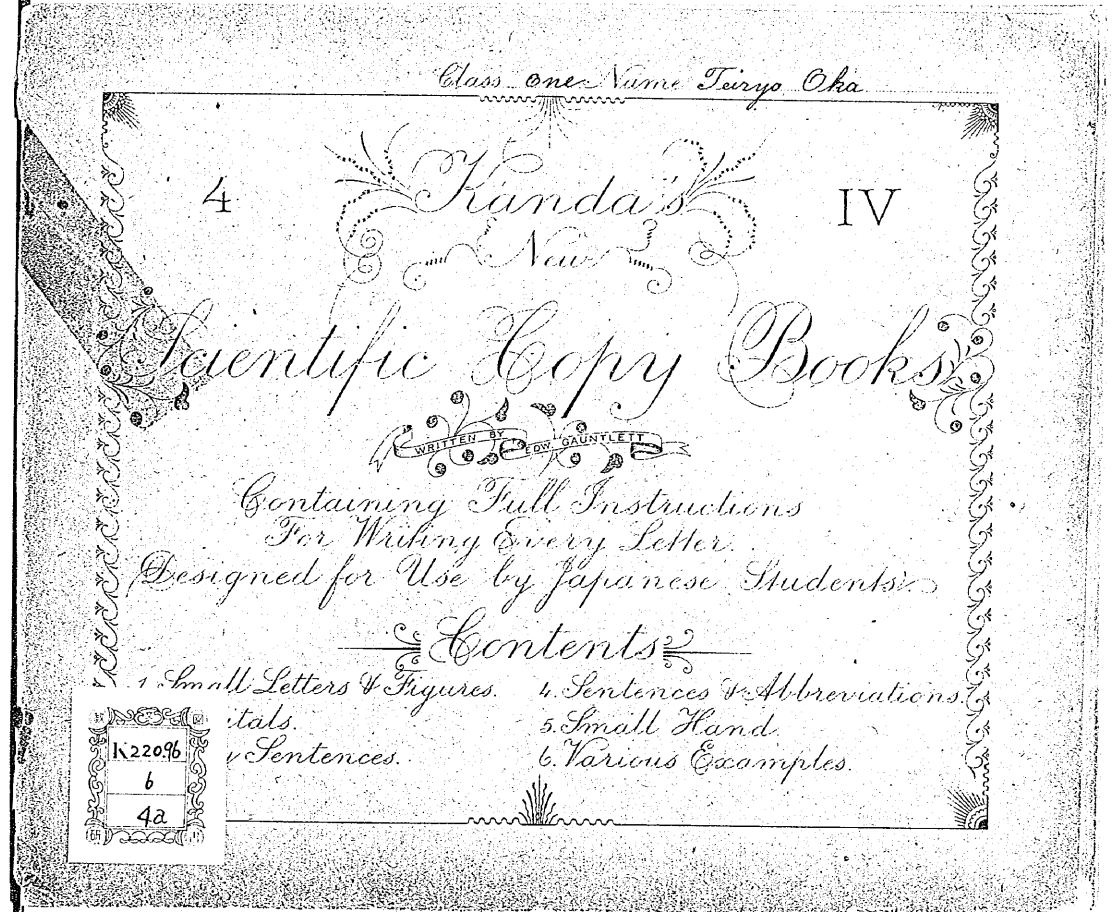 Class one Name Teiryo Oka
4 Kanda's IV
New
Scientific Copy Books
WRITTEN BY EDW. GAUNTLETT
Containing Full Instructions
For Writing Every Letter.
Designed for Use by Japanese Students.
Contents
1. Small Letters & Figures. 4. Sentences & Abbreviations.
itals. 5. Small Hand.
Sentences. 6. Various Examples.
K220.96
6
4a